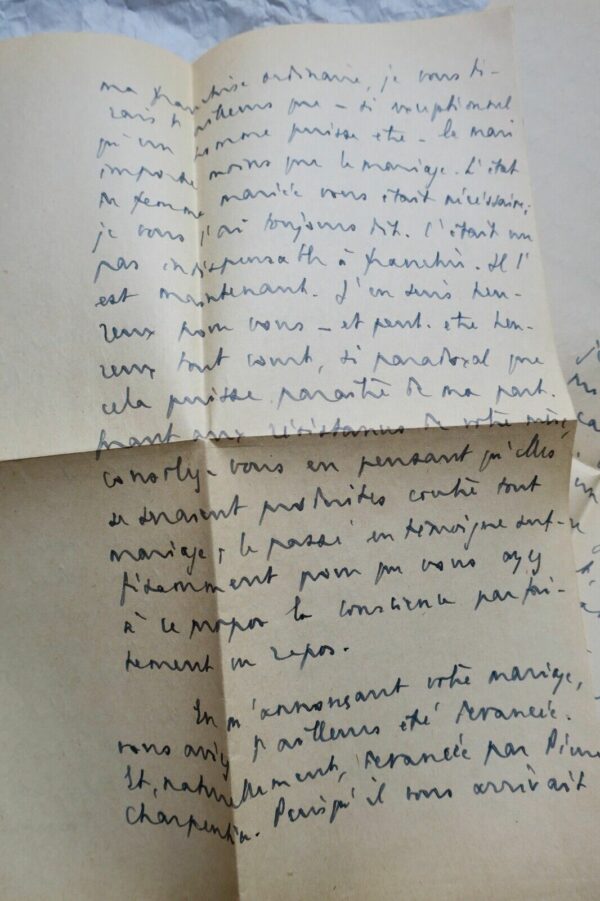 ma franchise ordinaire, je vous di-
rais d'ailleurs que – si exceptionnel
qu'un homme puisse être – le mari
importe moins que le mariage. L'état
de femme mariée vous était nécessaire,
je vous l'ai toujours dit. C'était un
pas indispensable à franchir. Il l'
est maintenant. J'en suis heu-
reux pour vous – et peut-être heu-
reux tout court, si paradoxal que
cela puisse paraître de ma part.
Quant aux résistances de votre mère,
consolez-vous en pensant qu'elles
se seraient produites contre tout
mariage ; le passé en témoigne suf-
fisamment pour que vous ayez
à ce propos la conscience parfai-
tement en repos.
En m'annonçant votre mariage,
vous aviez d'ailleurs été devancée.
Et, naturellement, devancée par Pierre
Charpentier. Puisqu'il vous arrivait